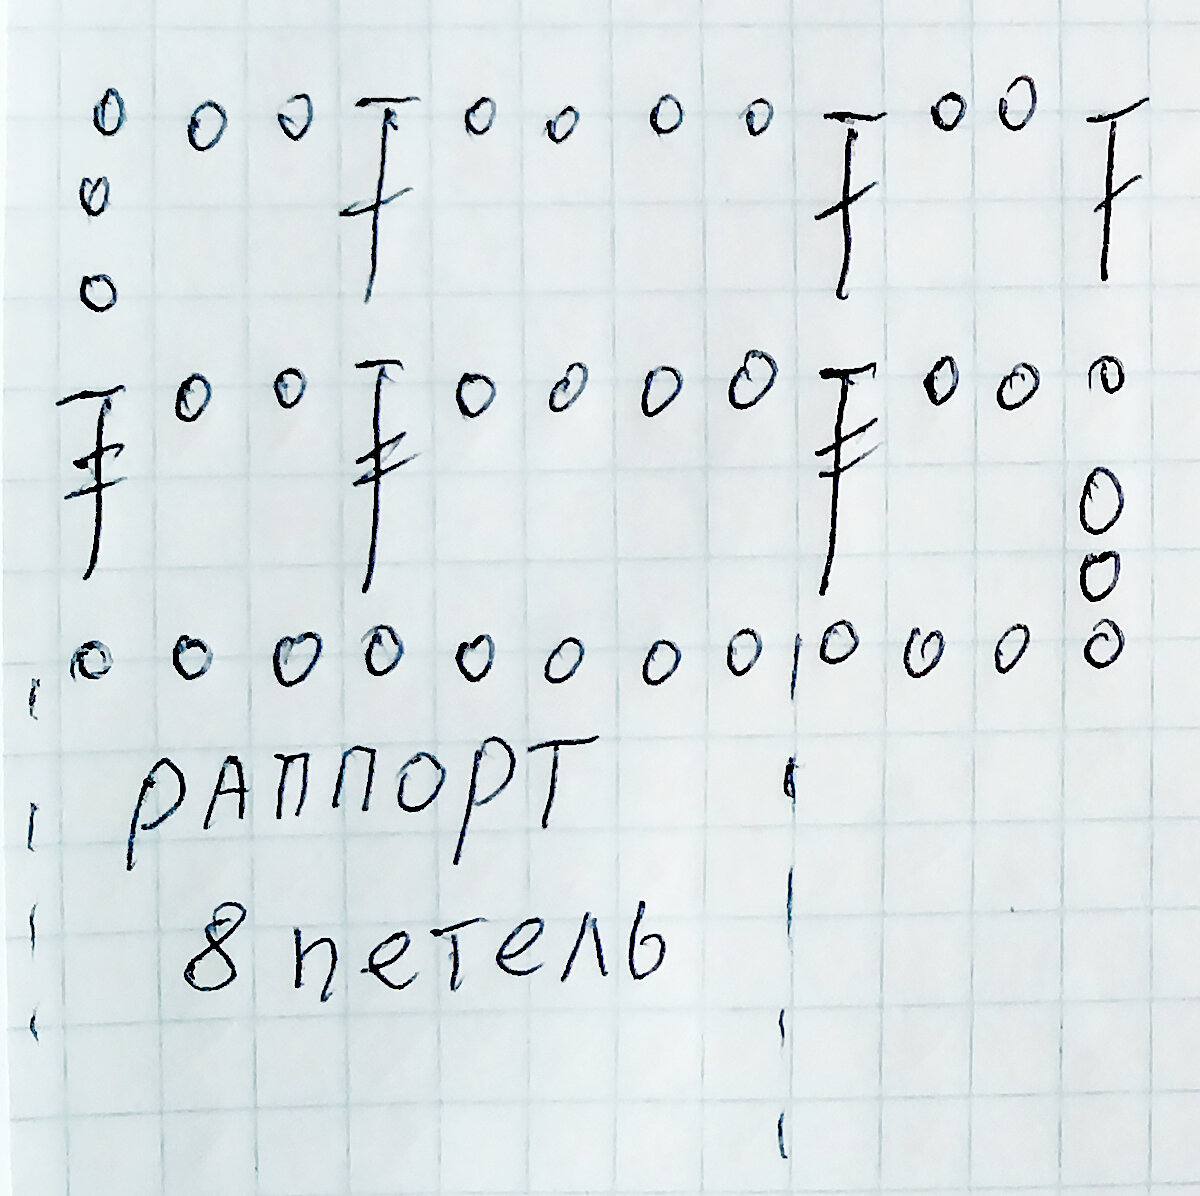 РАППОРТ
8 петель